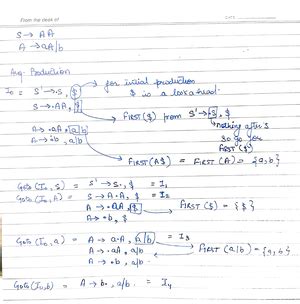 From the desk of
DATE
S → AA
A → aA/b
Aug. Production
I₀ = S' → .S, $ → for initial production $ is a lookahead
S → .AA, $ → FIRST($) from S' → .S, $
A → .aA, a/b
↳ nothing after S so go for FIRST($)
A → .b, a/b
→ FIRST(A$) = FIRST(A) = {a,b}
Goto (I₀, S) = S' → S., $ = I₁
Goto (I₀, A) = S → A.A, $ = I₂
A → .aA, $ → FIRST($) = {$}
A → .b, $
Goto (I₀, a) = A → a.A, a/b = I₃
A → .aA, a/b FIRST(a/b) = {a,b}
A → .b, a/b
Goto (I₀, b) = A → b., a/b = I₄